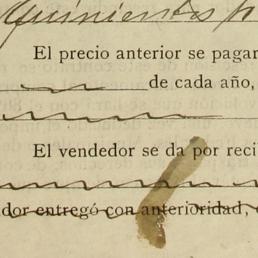 Quinientos p
El precio anterior se pagar
de cada año,
El vendedor se da por reci
dor entregó con anterioridad,